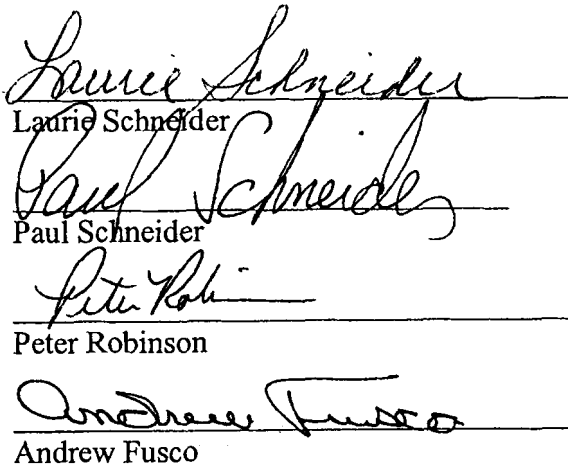 Laurie Schneider
Laurie Schneider
Paul Schneider
Paul Schneider
Peter Robin
Peter Robinson
Andrew Fusco
Andrew Fusco